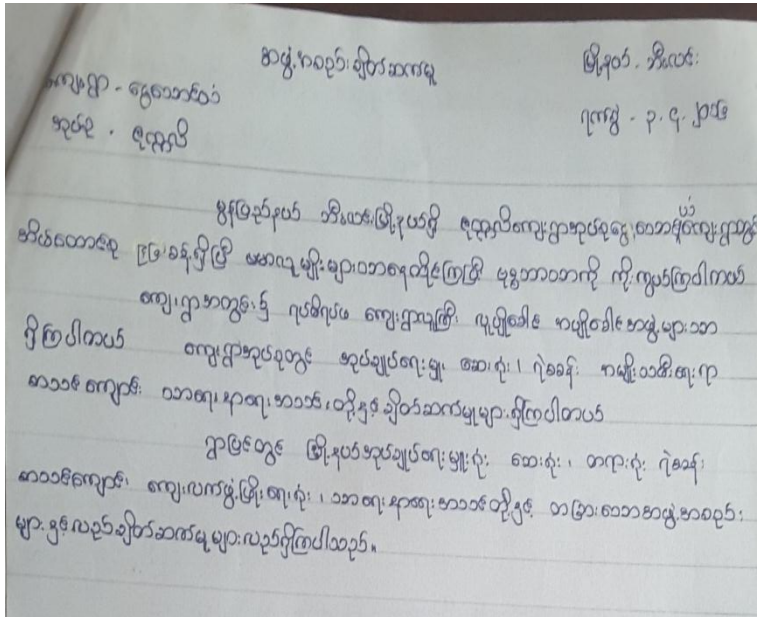 အဖွဲ့အစည်းချိတ်ဆက်မှု
မြို့နယ် - ဘီးလင်း
ကျေးရွာ - ရွှေသောင်ယံ
ရက်စွဲ - ၃.၄.၂၀၁၆
အုပ်စု - ဇုတ္ထလီ
မွန်ပြည်နယ် ဘီးလင်းမြို့နယ်ရှိ ဇုတ္ထလီကျေးရွာအုပ်စုရွှေသောင်ယံကျေးရွာတွင်
အိမ်ထောင်စု ခန့်ရှိပြီ ဗမာလူမျိုးများသာနေထိုင်ကြပြီ ဗုဒ္ဓဘာသာကို ကိုးကွယ်ကြပါတယ်
ကျေးရွာအတွင်း၌ ရပ်မိရပ်ဖ ကျေးရွာလူကြီး လူပျိုခေါင်း အပျိုခေါင်း အဖွဲ့များသာ
ရှိကြပါတယ် ကျေးရွာအုပ်စုတွင် အုပ်ချုပ်ရေးမှူး ဆေးရုံး၊ ရဲစခန်း အမျိုးသမီးရေးရာ
စာသင်ကျောင်း သာရေးနာရေးအသင်းတို့နှင့်ချိတ်ဆက်မှုများရှိကြပါတယ်
ရွာပြင်တွင် မြို့နယ်အုပ်ချုပ်ရေးမှူးရုံး ဆေးရုံး၊ တရားရုံး ရဲစခန်း
စာသင်ကျောင်း ကျေးလက်ဖွံ့ဖြိုးရေးရုံး၊ သာရေးနာရေးအသင်းတို့နှင့် တခြားသောအဖွဲ့အစည်း
များနှင့်လည်းချိတ်ဆက်မှုများလည်းရှိကြပါသည်။